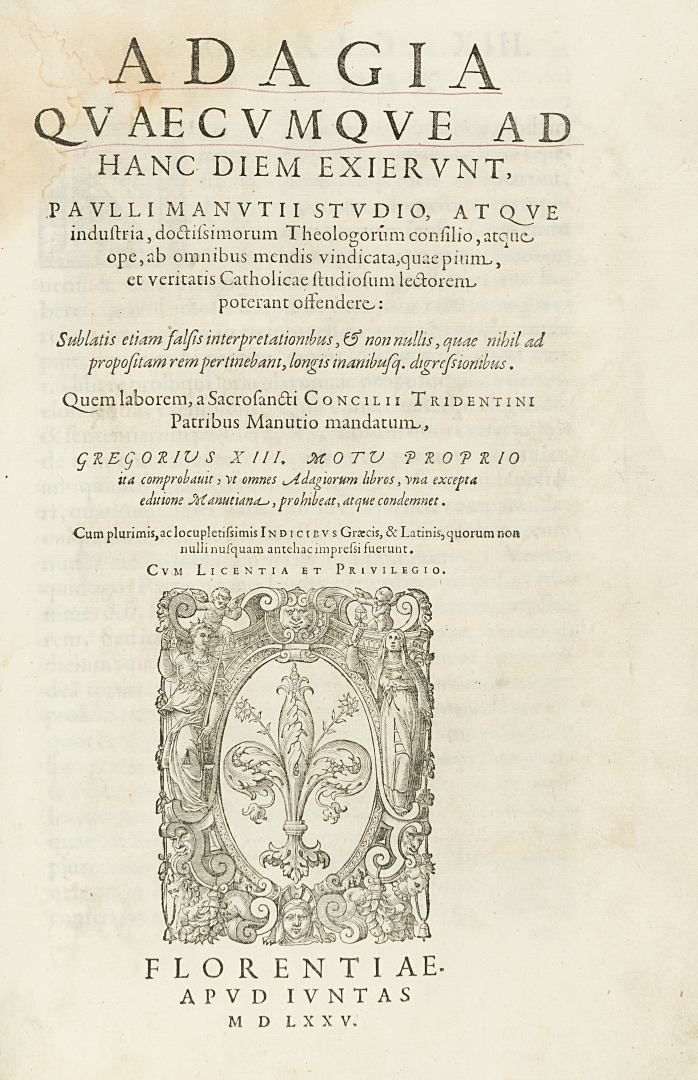 ADAGIA
QVAECVMQVE AD
HANC DIEM EXIERVNT,
PAVLLI MANVTII STVDIO, ATQVE
induſtria, doctiſsimorum Theologorúm conſilio, atque
ope, ab omnibus mendis vindicata, quae pium,
et veritatis Catholicae ſtudioſum lectorem
poterant offendere:
Sublatis etiam falſis interpretationibus, & non nullis, quae nihil ad
propoſitam rem pertinebant, longis inanibuſq. digreſsionibus.
Quem laborem, a Sacroſancti CONCILII TRIDENTINI
Patribus Manutio mandatum,
GREGORIVS XIII. MOTV PROPRIO
ita comprobauit, vt omnes Adagiorum libros, vna excepta
editione Manutiana, prohibeat, atque condemnet.
Cum plurimis, ac locupletiſsimis INDICIBVS Græcis, & Latinis, quorum non
nulli nuſquam antehac impreſsi fuerunt.
CVM LICENTIA ET PRIVILEGIO.
FLORENTIAE.
APVD IVNTAS
MDLXXV.